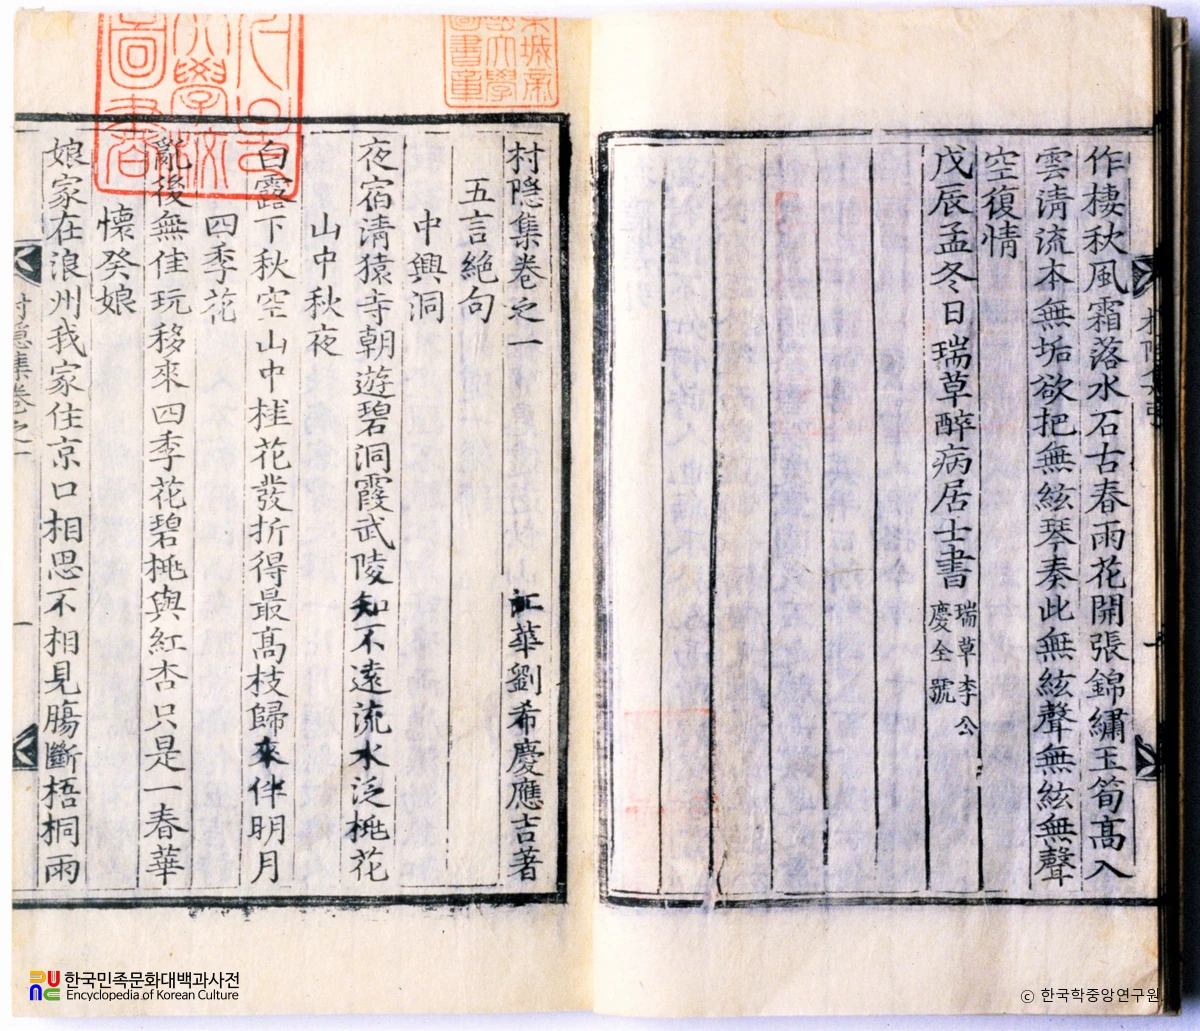 作棲秋風霜落水石古春雨花開張錦繡玉筍高入
雲清流本無垢欲把無絃琴奏此無絃聲無絃無聲
空復情
戊辰孟冬日瑞草醉病居士書 瑞草李公
慶全號
村隱集卷之一 江華劉希慶應吉著
五言絶句
中興洞
夜宿清猿寺朝遊碧洞霞武陵知不遠流水泛桃花
山中秋夜
白露下秋空山中桂花發折得最高枝歸來伴明月
四季花
亂後無佳玩移來四季花碧桃與紅杏只是一春華
懷癸娘
娘家在浪州我家住京口相思不相見膓斷梧桐雨
村隱集卷之一
一
한국민족문화대백과사전
Encyclopedia of Korean Culture
© 한국학중앙연구원